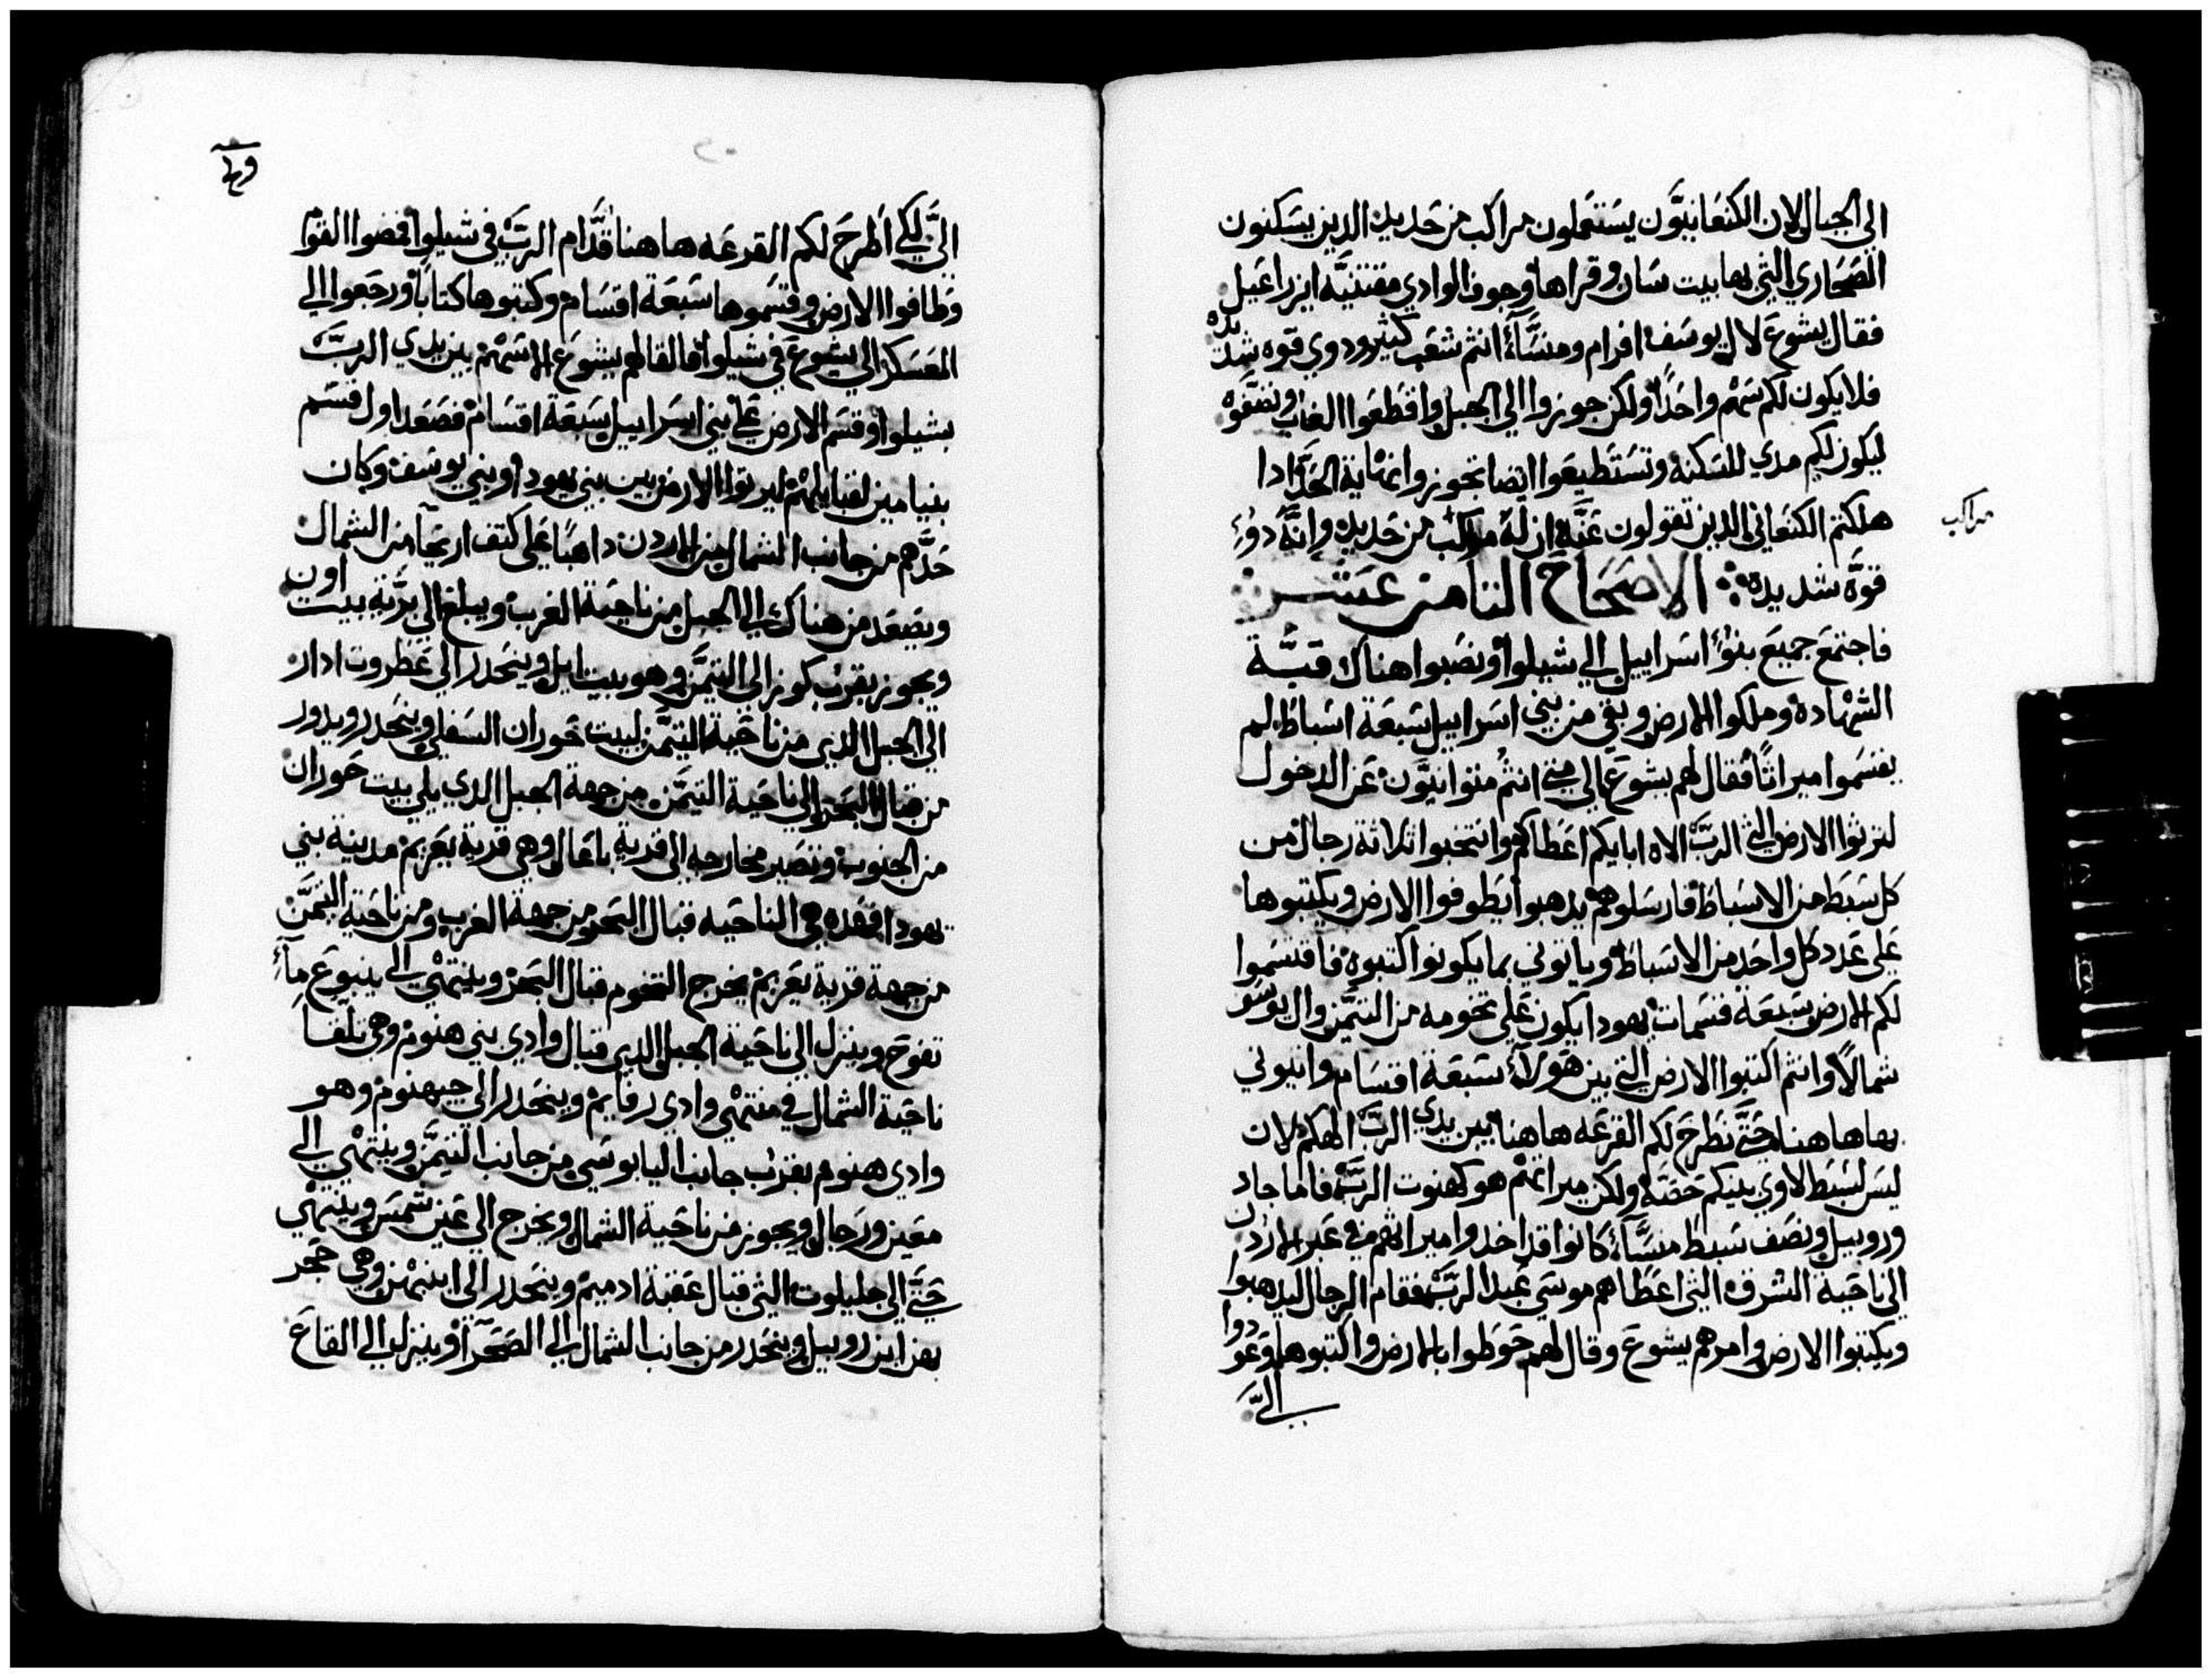 الى الجبال لان الكنعانيون يستعملون مراكب من حديد الدين يسكنون
الصحاري التي بها بيت سان وقراها وجوف الوادي مقتنية ايزراعيل
فقال يشوع لال يوسف افرام ومنسا انتم شعب كثير ودوي قوه شديده
فلا يكون لكم سهم واحدا ولكن جوزوا الى الجبل واقطعوا الغاب ونقوه
ليكون لكم مدي للسكنه وتستطيعوا ايضا تجوزوا نهاية الحد ادا
هلكتم الكنعاني الدين تقولون عنه ان له مراكب من حديد وانه دو
مراكب
قوه شديده الاصحاح الثامن عشر
فاجتمع جميع بنو اسراييل الى شيلوا ونصبوا هناك قبة
الشهاده وملكوا الارض وبقي من بني اسراييل سبعة اسباط لم
يقسموا ميراثا فقال لهم يشوع الى متي انتم متوانيون عن الدخول
لترثوا الارض التي الرب الاه ابايكم اعطاكم وانتخبوا تلاتة رجال من
كل سبط من الاسباط فارسلوهم يدهبوا يطوفوا الارض ويكتبوها
على عدد كل واحد من الاسباط وياتوني بما يكونوا كتبوه فاقتسموا
لكم الارض سبعة قسمات يهودا يكون على تخومه من التيمن وال يوسف
شمالا وانتم اكتبوا الارض التي بين هولا سبعة اقسام وايتوني
بها هاهنا حتى نطرح لكم القرعه هاهنا بين يدي الرب الهكم لان
ليس لسبط لاوي بينكم حصة ولكن ميراثهم هو كهنوت الرب فاما جاد
وروبيل ونصف سبط منسا كانوا قد اخدوا ميراثهم في عبر الاردن
الى ناحية الشرق التي اعطاهم موسي عبد الرب فقام الرجال ليدهبوا
ويكتبوا الارض وامرهم يشوع وقال لهم حوطوا بالارض واكتبوها وعودوا
الى
الى لكي اطرح لكم القرعه هاهنا قدام الرب في شيلوا فمضوا القوم
وطافوا الارض وقسموها سبعة اقسام وكتبوها كتابا ورجعوا الى
المعسكر الى يشوع في شيلوا فالقا لهم يشوع الاسهم بين يدي الرب
بشيلوا وقسم الارض على بني اسراييل سبعة اقسام فصعد اول قسم
بنيامين لقبايلهم ليرتوا الارض بين بني يهودا وبني يوسف وكان
حدهم من جانب الشمال من الاردن داهبا على كتف اريحا من الشمال
ويصعد من هناك الى الجبل من ناحية الغرب ويبلغ الى برية بيت اون
ويجوز بقرب كوز الى التيمن وهو بيت ايل وينحدر الى عطروت ادار
الى الجبل الدي من ناحية التيمن لبيت حوران السفلي وينحدر ويدور
من قبال البحر الى ناحية التيمن من جهة الجبل الدي يلي بيت حوران
من الجنوب وتصير مخارجه الى قرية باعال وهي قرية يعريم مدينة بني
يهودا فهده هي الناحيه قبال البحر من جهة الغرب ومن ناحية التيمن
من جهة قرية يعريم يخرج التخوم قبال البحر وينتهي الى ينبوع مآ
تفوح وينزل الى ناحية الجبل الدي قبال وادي بني هنوم وهي تلقا
ناحية الشمال في منتهي وادي رفايم وينحدر الى جيهنوم وهو
وادي هنوم بقرب جانب اليابوسي من جانب التيمن وينتهي الى
معين ورجال ويجوز من ناحية الشمال ويخرج الى عين شمس وينتهي
حتى الى جليلوت التي قبال عقبة ادميم وينحدر الى ابنهن وهي حجر
بهن ابن روبيل وينحدر من جانب الشمال الى الصحرا وينزل الى القاع